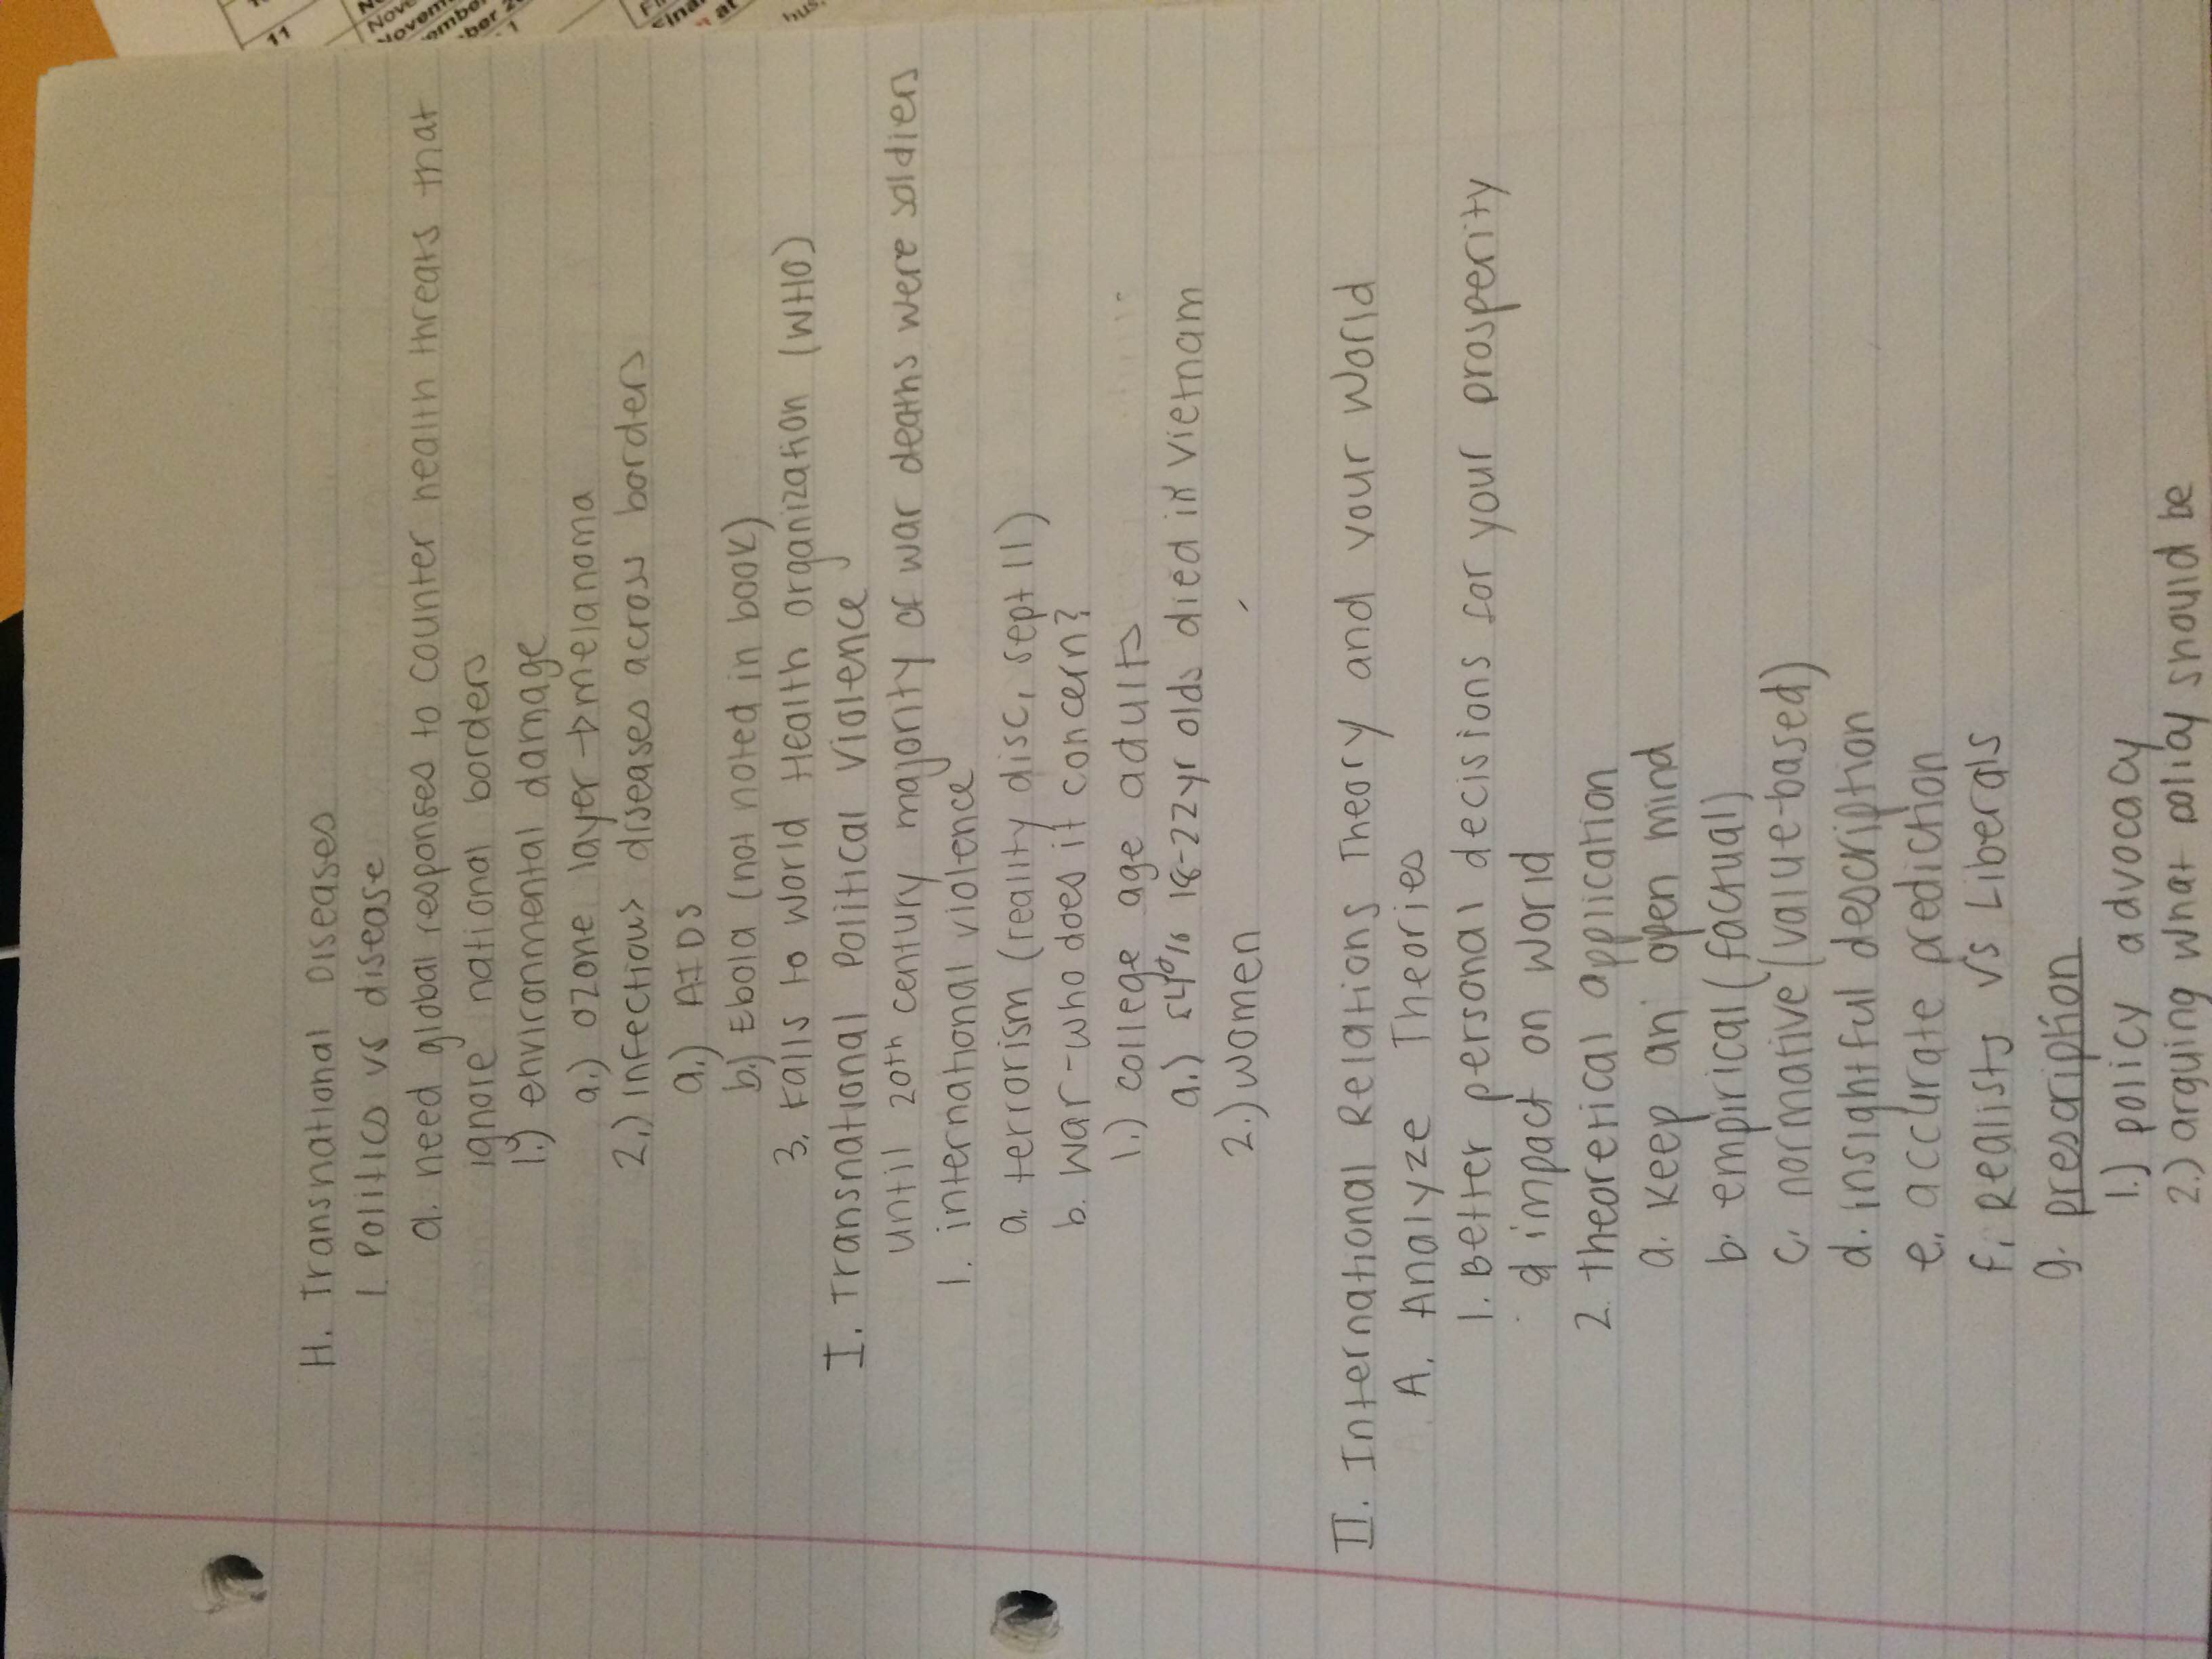 H. Transnational Diseases
1. Politics vs disease
a. need global responses to counter health threats that
ignore national borders
1.) environmental damage
a.) ozone layer → melanoma
2.) infectious diseases across borders
a.) AIDS
b.) Ebola (not noted in book)
3. falls to World Health organization (WHO)
I. Transnational Political Violence
until 20th century majority of war deaths were soldiers
1. international violence
a. terrorism (reality disc, sept 11)
b. war-who does it concern?
1.) college age adults
a.) 54% 18-22yr olds died in vietnam
2.) women
II. International Relations Theory and your World
A. Analyze Theories
1. Better personal decisions for your prosperity
& impact on world
2. theoretical application
a. keep an open mind
b. empirical (factual)
c. normative (value-based)
d. insightful description
e. accurate prediction
f. Realists vs Liberals
g. prescription
1.) policy advocacy
2.) arguing what policy should be
11